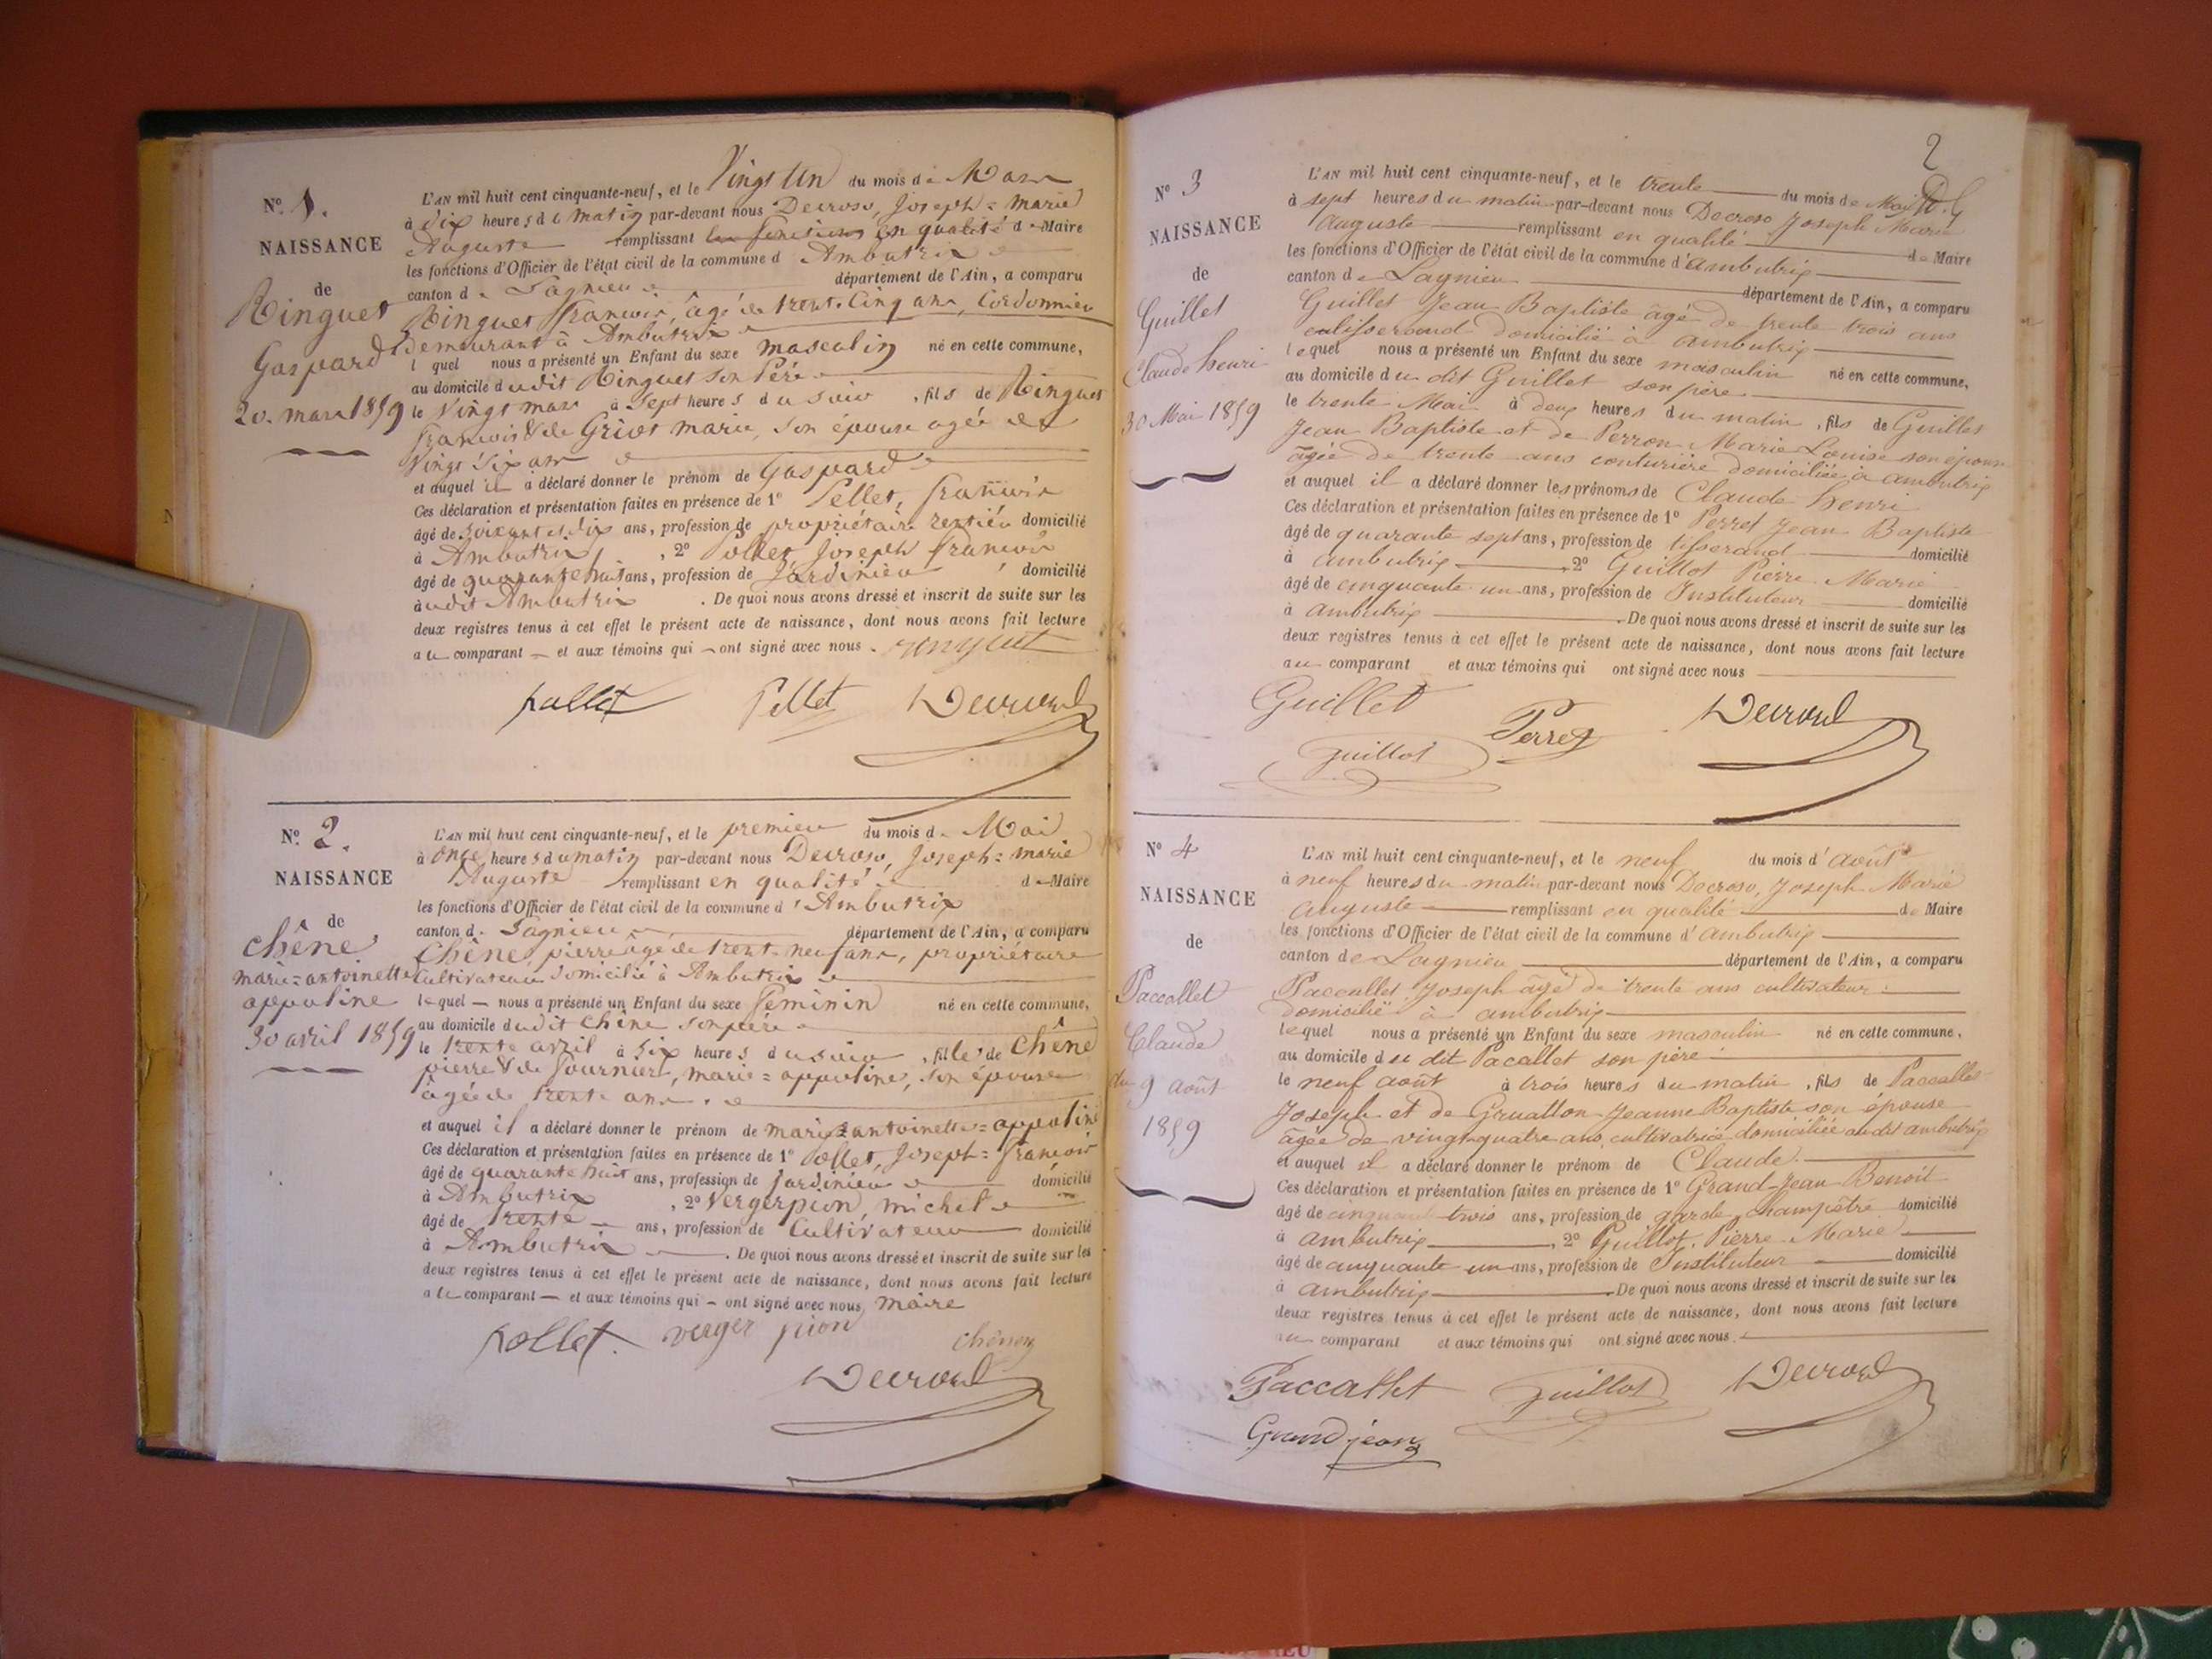 N° 1.
NAISSANCE
de
Ringuet
Gaspard
20. mars 1859
L'AN mil huit cent cinquante-neuf, et le Vingt Un du mois de Mars
à dix heures du matin par-devant nous Decroso, Joseph=marie
Auguste remplissant les fonctions en qualité de Maire
les fonctions d'Officier de l'état civil de la commune d Ambutrix
canton de Lagnieu département de l'Ain, a comparu
Ringuet François, âgé de trente Cinq ans, Cordonnier
demeurant à Ambutrix
l quel nous a présenté un Enfant du sexe masculin né en cette commune,
au domicile dudit Ringuet Son Père
le Vingt mars à Sept heures du soir, fils de Ringuet
François & de Griot marie, Son épouse agée de
Vingt Six ans
et auquel il a déclaré donner le prénom de Gaspard
Ces déclaration et présentation faites en présence de 1° Pellet, François
âgé de soixante et dix ans, profession de propriétaire rentier domicilié
à Ambutrix, 2° Pollet Joseph François
âgé de quarante huit ans, profession de Jardinier domicilié
audit Ambutrix. De quoi nous avons dressé et inscrit de suite sur les
deux registres tenus à cet effet le présent acte de naissance, dont nous avons fait lecture
au comparant — et aux témoins qui — ont signé avec nous.
pollet Pellet Decroso
N° 2.
NAISSANCE
de
Chêne
marie=antoinette
appoline
30 avril 1859
L'AN mil huit cent cinquante-neuf, et le premier du mois de Mai
à onze heures du matin par-devant nous Decroso, Joseph=marie
Auguste remplissant en qualité de Maire
les fonctions d'Officier de l'état civil de la commune d'Ambutrix
canton de Lagnieu département de l'Ain, a comparu
Chêne pierre âgé de trente-neuf ans, propriétaire
Cultivateur domicilié à Ambutrix
lequel — nous a présenté un Enfant du sexe féminin né en cette commune,
au domicile dudit Chêne son père
le trente avril à six heures du soir, fille de Chêne
pierre & de Fournier, marie=appoline, son épouse
âgée de trente ans.
et auquel il a déclaré donner le prénom de marie=antoinette=appoline
Ces déclaration et présentation faites en présence de 1° Pollet, Joseph=François
âgé de quarante huit ans, profession de jardinier domicilié
à Ambutrix, 2° Vergerpion, michel
âgé de trente ans, profession de Cultivateur domicilié
à Ambutrix. De quoi nous avons dressé et inscrit de suite sur les
deux registres tenus à cet effet le présent acte de naissance, dont nous avons fait lecture
au comparant — et aux témoins qui — ont signé avec nous, maire
pollet. verger pion
Decroso
2
N° 3
NAISSANCE
de
Guillet
Claude henri
30 Mai 1859
L'AN mil huit cent cinquante-neuf, et le trente du mois de Mai
à sept heures du matin par-devant nous Decroso Joseph Marie
Auguste remplissant en qualité de Maire
les fonctions d'Officier de l'état civil de la commune d'ambutrix
canton de Lagnieu département de l'Ain, a comparu
Guillet Jean Baptiste âgé de trente trois ans
domicilié à ambutrix
lequel nous a présenté un Enfant du sexe masculin né en cette commune,
au domicile du dit Guillet son père
le trente Mai à deux heures du matin, fils de Guillet
Jean Baptiste et de Perron Marie Louise son épouse
âgée de trente ans couturière domiciliée à ambutrix
et auquel il a déclaré donner les prénoms de Claude henri
Ces déclaration et présentation faites en présence de 1° Perret Jean Baptiste
âgé de quarante sept ans, profession de tisserand domicilié
à ambutrix, 2° Guillot Pierre Marie
âgé de cinquante un ans, profession de Instituteur domicilié
à ambutrix. De quoi nous avons dressé et inscrit de suite sur les
deux registres tenus à cet effet le présent acte de naissance, dont nous avons fait lecture
au comparant et aux témoins qui ont signé avec nous
Guillet Perret Decroso
Guillot
N° 4
NAISSANCE
de
Paccallet
Claude
du 9 août
1859
L'AN mil huit cent cinquante-neuf, et le neuf du mois d'août
à neuf heures du matin par-devant nous Decroso, Joseph Marie
Auguste remplissant en qualité de Maire
les fonctions d'Officier de l'état civil de la commune d'ambutrix
canton de Lagnieu département de l'Ain, a comparu
Paccallet Joseph âgé de trente ans cultivateur
domicilié à ambutrix
lequel nous a présenté un Enfant du sexe masculin né en cette commune,
au domicile du dit Pacallet son père
le neuf août à trois heures du matin, fils de Paccallet
Joseph et de Gruatton Jeanne Baptiste son épouse
âgée de vingt-quatre ans, cultivatrice domiciliée audit ambutrix
et auquel il a déclaré donner le prénom de Claude
Ces déclaration et présentation faites en présence de 1° Grand-Jean Benoit
âgé de cinquante trois ans, profession de garde champêtre domicilié
à ambutrix, 2° Guillot, Pierre Marie
âgé de cinquante un ans, profession de Instituteur domicilié
à ambutrix. De quoi nous avons dressé et inscrit de suite sur les
deux registres tenus à cet effet le présent acte de naissance, dont nous avons fait lecture
au comparant et aux témoins qui ont signé avec nous.
Paccallet Guillot Decroso
Grandjean